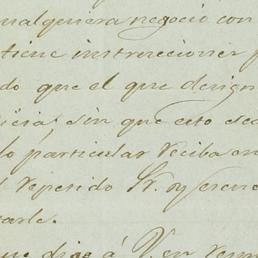 ualquiera negocio con
tiene instrucciones p
do que el que design
icial sin que esto sea
lo particular reciba on
l repetido Sr. y
tarle.
que dige á V. en